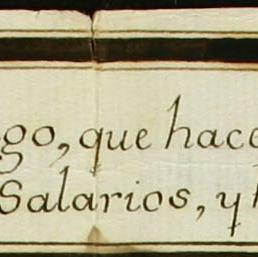 go, que hace
Salarios, y